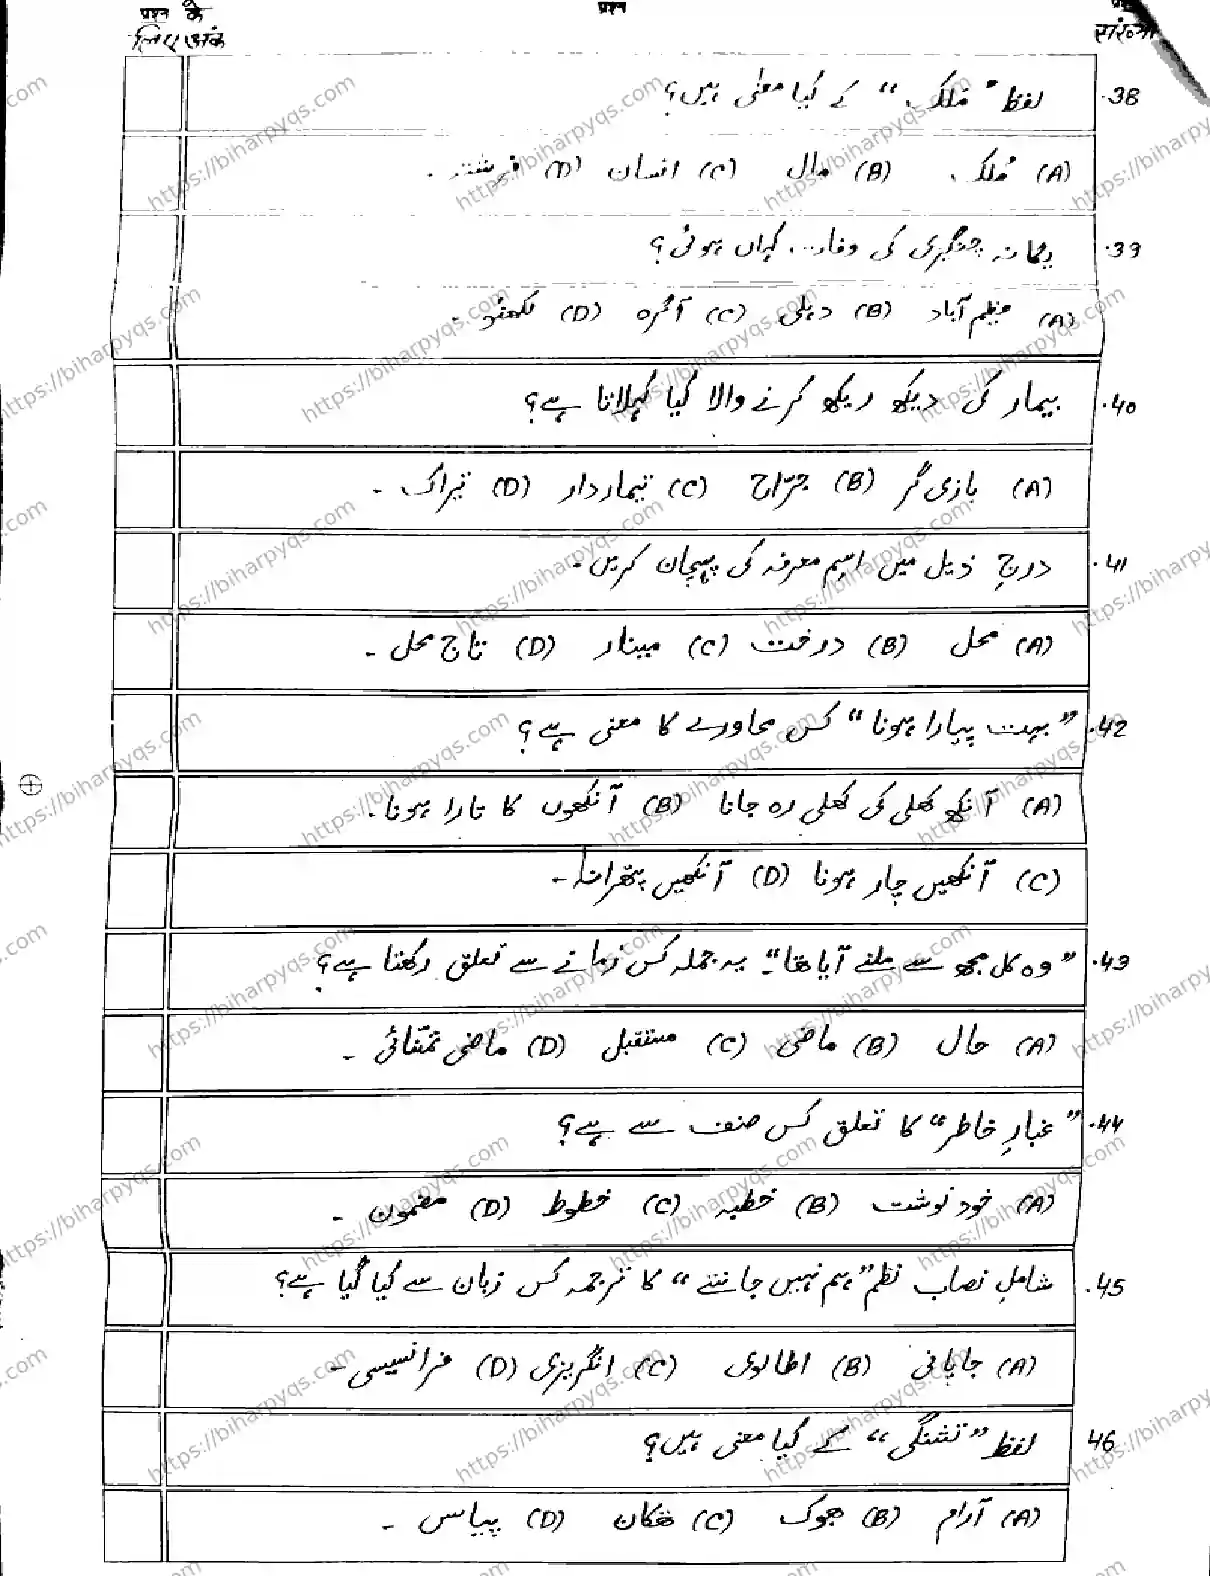 प्रश्न के प्रश्न प्रश्न
लिए अंक संख्या
38. لفظ "ملک" کے کیا معنی ہیں؟
(A) مُلک (B) مال (C) انسان (D) فرشتہ ۔
39. یگانہ چنگیزی کی وفات کہاں ہوئی؟
(A) عظیم آباد (B) دہلی (C) آگرہ (D) لکھنؤ ۔
40. بیمار کی دیکھ ریکھ کرنے والا کیا کہلاتا ہے؟
(A) بازی گر (B) جرّاح (C) تیماردار (D) تیراک ۔
41. درجِ ذیل میں اسِم معرفہ کی پہچان کریں۔
(A) محل (B) درخت (C) مینار (D) تاج محل ۔
42. "بہت پیارا ہونا" کس محاورے کا معنی ہے؟
(A) آنکھ کھلی کی کھلی رہ جانا (B) آنکھوں کا تارا ہونا۔
(C) آنکھیں چار ہونا (D) آنکھیں پتھرانا۔
43. "وہ کل مجھ سے ملنے آیا تھا"۔ یہ جملہ کس زمانے سے تعلق رکھتا ہے؟
(A) حال (B) ماضی (C) مستقبل (D) ماضی تمنّائی ۔
44. "غبارِ خاطر" کا تعلق کس صنف سے ہے؟
(A) خود نوشت (B) خطبہ (C) خطوط (D) مضمون ۔
45. شاملِ نصاب نظم "ہم نہیں جانتے" کا ترجمہ کس زبان سے کیا گیا ہے؟
(A) جاپانی (B) اطالوی (C) انگریزی (D) فرانسیسی ۔
46 لفظ "تشنگی" کے کیا معنی ہیں؟
(A) آرام (B) بھوک (C) تھکان (D) پیاس ۔
https://biharpyqs.com